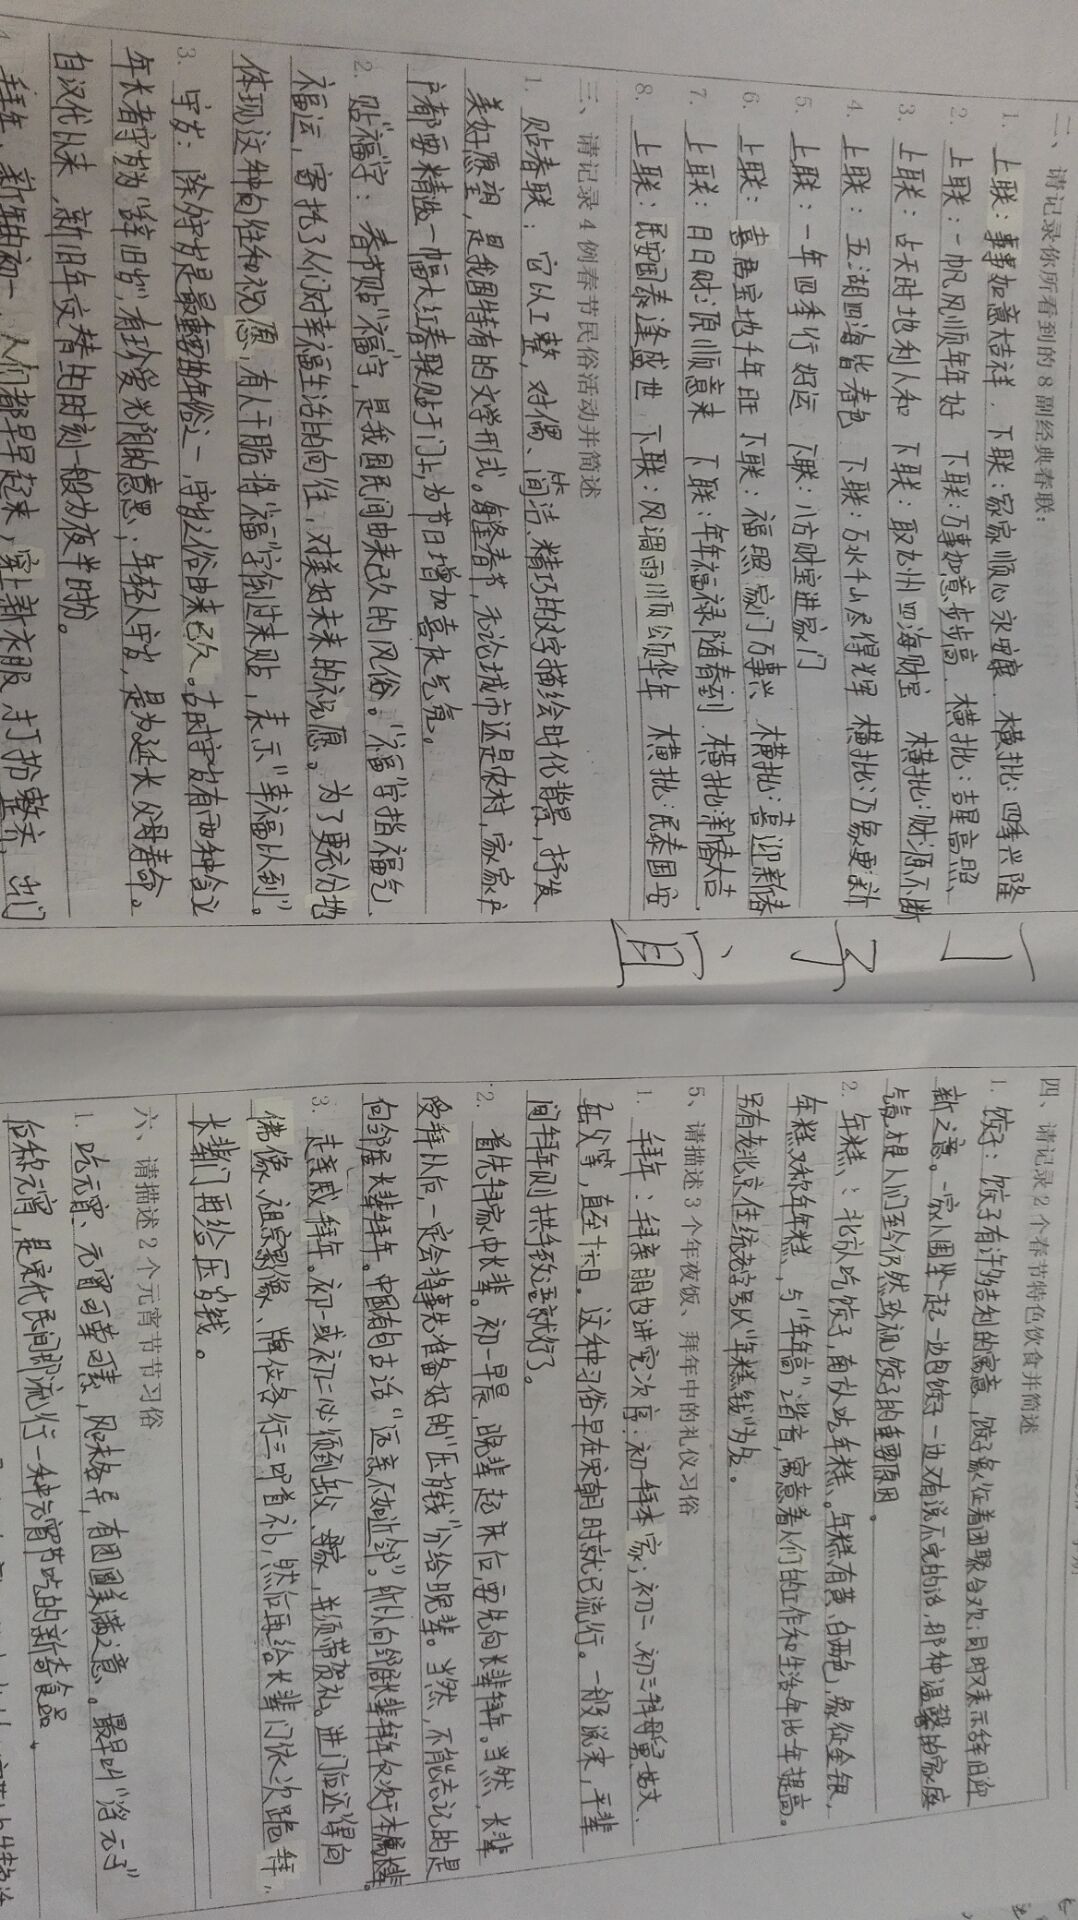 二、请记录你所看到的8副经典春联：
1. 上联：事事如意大吉祥 下联：家家顺心永安康 横批：四季兴隆
2. 上联：一帆风顺年年好 下联：万事如意步步高 横批：吉星高照
3. 上联：占天时地利人和 下联：取九州四海财宝 横批：财源不断
4. 上联：五湖四海皆春色 下联：万水千山尽得辉 横批：万象更新
5. 上联：一年四季行好运 下联：八方财宝进家门
6. 上联：喜居宝地千年旺 下联：福照家门万事兴 横批：喜迎新春
7. 上联：日日财源顺意来 下联：年年福禄随春到 横批：新春大吉
8. 上联：民安国泰逢盛世 下联：风调雨顺颂华年 横批：民泰国安
三、请记录4例春节民俗活动并简述
1. 贴春联：它以工整，对偶、简洁、精巧的文字描绘时代背景，抒发
美好愿望，是我国特有的文学形式。每逢春节，无论城市还是农村，家家户
户都要精选一幅大红春联贴于门上，为节日增加喜庆气氛。
2. 贴“福”字：春节贴“福”字，是我国民间由来已久的风俗。“福”字指福气、
福运，寄托了人们对幸福生活的向往，对美好未来的祝愿。为了更充分地
体现这种向往和祝愿，有人干脆将“福”字倒过来贴，表示“幸福以到”。
3. 守岁：除夕守岁是最重要的年俗之一，守岁之俗由来已久。古时守岁有两种含义
年长者守岁为“辞旧岁”，有珍爱光阴的意思，年轻人守岁，是为延长父母寿命。
自汉代以来，新旧年交替的时刻一般为夜半时分。
4. 拜年：新年的初一，人们都早早起来，穿上新衣服，打扮整齐，出门
丁
子
宜
四、请记录2个春节特色饮食并简述
1. 饺子：饺子有许多吉利的寓意，饺子象征着团聚合欢；同时又表示辞旧迎
新之意。一家人围坐一起一边包饺子一边又有说不完的话，那种温馨的家庭
气氛才是人们至今仍然珍视饺子的重要原因。
2. 年糕：北方吃饺子，南方人吃年糕。年糕有黄、白两色，象征金银，
年糕又称年年糕，与“年年高”谐音，寓意着人们的工作和生活年比年提高。
另有老北京住统老字号以“年糕钱”为友。
5、请描述3个年夜饭、拜年中的礼仪习俗
1. 拜年：拜亲朋也讲究次序：初一拜本家；初二、初三拜母舅、姑丈、
岳父等，直至十六日。这种习俗早在宋朝时就已流行。一般说来，平辈
间拜年则拱手致语就行了。
2. 首先拜家中长辈。初一早晨，晚辈起床后，要先向长辈拜年。当然，长辈
受拜以后，一定会将事先准备好的“压岁钱”分给晚辈。当然，不能忘记的是
向邻居长辈拜年。中国有句古话“远亲不如近邻”。所以向邻居长辈拜年仅次于本属长辈。
3. 走亲戚拜年。初一或初二必须到岳父、母家，并须带贺礼。进门后还得向
佛像、祖宗影像、牌位各行三叩首礼，然后再给长辈们依次跪拜，
长辈们再给压岁钱。
六、请描述2个元宵节节习俗
1. 吃元宵、元宵可荤可素，风味各异，有团圆美满之意。最早叫“浮元子”
后称元宵，是宋代民间即流行一种元宵节吃的新奇食品。